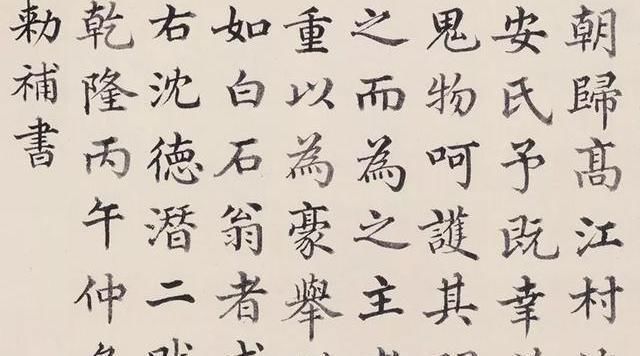 朝歸高江村
安氏予既幸
鬼物呵護其
之而為之主
重以為豪舉
如白石翁者
右沈德潛二
乾隆丙午仲
勅補書